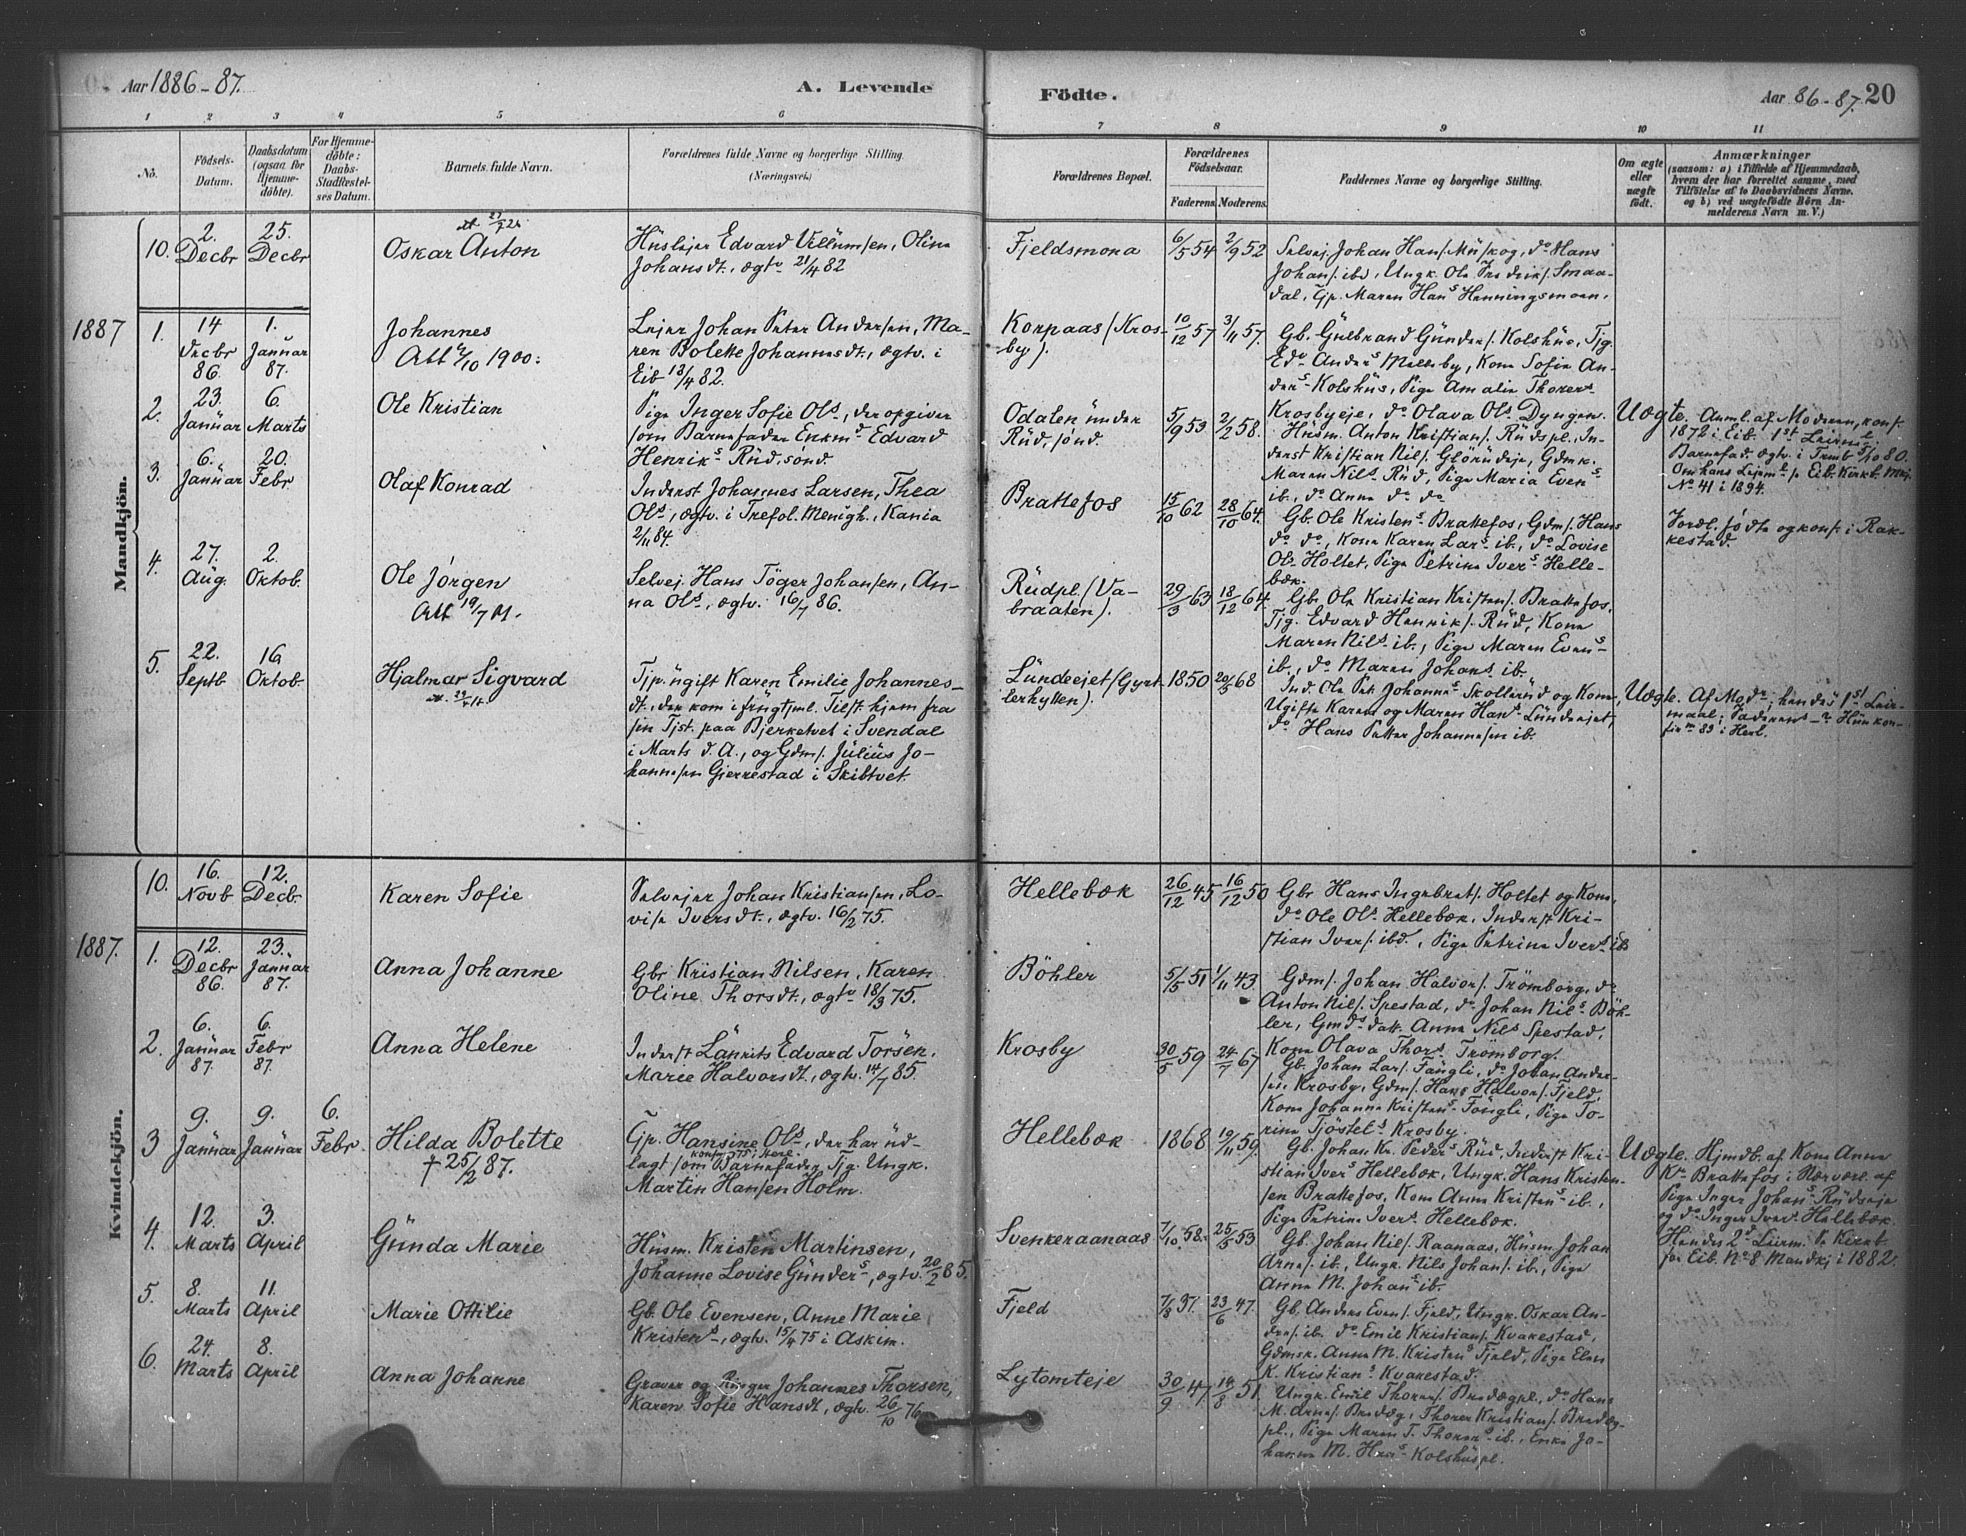 Aar 1886-87.
A. Levende
Födte.
Aar 86-87. 20
1 2 3 4 5 6 7 8 9 10 11
No.
Födsels-Datum.
Daabsdatum (ogsaa for Hjemme-döbte).
For Hjemme-döbte: Daabs-Stadfæstel-ses Datum.
Barnets fulde Navn.
Forældrenes fulde Navne og borgerlige Stilling.
(Næringsvei.)
Forældrenes Bopæl.
Forældrenes Födselsaar.
Faderens. Moderens.
Faddernes Navne og borgerlige Stilling.
Om ægte eller uægte født.
Anmærkninger
(saasom: a) i Tilfælde af Hjemmedaab,
hvem der har forrettet samme, med
Tilföielse af to Daabsvidners Navne.
og b) ved uægtefödte Börn An-
melderens Navn m. V.)
Mandkjön.
10. 2. Decbr 25. Decbr
Oskar Anton
Edvard Villumsen, Oline
Johansdt., ægtv 21/4 82
Fjeldsmona
6/5 54 2/9 52
Selvej. Johan Hans. Müskog, do Hans
Johans. ibd, Ungk. Ole Fredriks. Smaa-
dal, Gp. Maren Hans Henningsmoen.
1887
1. 14 Decbr 86. 1. Januar 87.
Johannes
Att 1900.
Lejer Johan Peter Andersen, Ma-
ren Bolette Johannesdt., ægtv. i
Eib 13/4 82.
Korpaas (Kros-
by).
10/12 57 3/11 57.
Gb. Gulbrand Günders. Kolshus, Tjg.
Ed. Anders Melleby, Kone Sofie An-
ders Kolshüs, Pige Amalie Thorers
Krosbyeje, do Olava Ols Dyngen.
2. 23. Januar 6. Marts
Ole Kristian
Pige Inger Sofie Ols, der opgiver
som Barnefader Enkmd Edvard
Henriks Rüd, sønd.
Odalen under
Rüd, sønd.
5/9 53 2/2 58.
Husm. Anton Kristians. Rüdspl., In-
derst Kristian Nils. Glörudeje, Gdmk.
Maren Nils Rüd, Pige Maria Evens
ib., do Anne do do
Uægte.
Anml. af Moderen, konf.
1872 i Eib. 1st Leirml.
Barnefad. ægtv. i Trmb 80.
Om hans Lejem. se Eib. Kirkb. Mkj.
No 41 i 1894.
3. 6. Januar 20. Febr
Olaf Konrad
Inderst Johannes Larsen, Thea
Ols, ægtv. i Trefol. Menigh., Kania
2/11 84.
Brattefos
15/10 62 28/10 64.
Gb. Ole Kristens Brattefos, Gdms. Hans
do do, Kone Karen Lars ib., do Lovise
Ols Holtet, Pige Petrine Ivers Helle-
bæk.
Foræl. födte og konf. i Rak-
kestad.
4. 27. Aug. 2. Oktob.
Ole Jørgen
Att 19/7 01.
Selvej. Hans Töger Johansen, An-
na Ols, ægtv. 16/7 86.
Rüdpl. (Va-
braaten).
29/3 63 18/12 64.
Gbr Ole Kristian Kristens. Brattefos,
Tjg. Edvard Henriks. Rüd, Kone
Maren Nils ib., Pige Maren Evens
ib., do Maren Johans ib.
5. 22. Septb 16. Oktob.
Hjalmar Sigvard
Tjp. ügift Karen Emilie Johannes-
dt., der kom i frugtsml. Tilst. hjem fra
sin Tjst. paa Bjerketvet i Svendal
i Marts d. A., og Gdms. Jülius Jo-
hannesen Gjerrestad i Skibtvet.
Lündeejet (Gyrt-
lerhytten).
1850 20/5 68
Ind. Ole Pet. Johannes Skollerüd og Kone,
Ugifte Karen og Maren Hans Lündeejet,
do Hans Petter Johannesen ib.
Uægte.
Af Modr; hendes 1st Leir-
maal; Faderens –. Hün kon-
firm 83 i Herl.
Kvindekjön.
10. 16. Novb 12. Decb.
Karen Sofie
Selvejer Johan Kristiansen, Lo-
vise Iversdt., ægtv. 16/2 75.
Hellebæk
26/12 45 16/12 50
Gbr Hans Ingebrets. Holtet og Kone,
do Ole Ols Hellebæk, Inderst Kri-
stian Ivers. ibd., Pige Petrine Ivers ib
1887.
1. 12. Decbr 86. 23. Januar 87.
Anna Johanne
Gbr Kristian Nilsen, Karen
Oline Thorsdt., ægtv 18/3 75.
Böhler
5/5 51 1/11 43.
Gdms. Johan Halvors. Trömborg, do
Anton Nils. Spestad, do Johan Nils Böh-
ler, Gmds datt. Anne Nils Spestad,
Kone Olava Thors Trömborg.
2. 6. Januar 87. 6. Febr 87.
Anna Helene
Inderst Laurits Edvard Torsen,
Marie Halvorsdt., ægtv. 14/7 85.
Krosby
30/5 59 24/7 67
Gb. Johan Lars. Füngli, do Johan Ander-
sen Krosby, Gdms. Hans Halvors. Fjeld,
Kone Johanne Kristens Füngli, Pige To-
rine Tjöstels Krosby.
3 9. Januar 9. Januar 6. Febr
Hilda Bolette
† 25/2 87.
Gp. Hansine Ols, der har üd-
konf. 75 i Herl.
lagt som Barnefader Tjg. Ungk.
Martin Hansen Holm.
Hellebæk
1868 19/11 59.
Gb. Johan Kr. Peders Rüd, Inderst Kri-
stian Ivers Hellebæk, Ungk. Hans Kristen-
sen Brattefos, Kone Anne Kristens ib.,
Pige Petrine Ivers Hellebæk.
Uægte.
Hjmdb. af Kone Anne
Krs Brattefos i Nærvær. af
Pige Inger Johans Rüdseje
og do Inger Ivers Hellebæk.
Hendes 2d Leirm. Se Kirkb
for Eib. No 8 Mandkj i 1882.
4. 12. Marts 3. April
Günda Marie
Hüsm. Kristen Martinsen,
Johanne Lovise Günders, ægtv. 20/2 85.
Svenkeraanaas
7/10 58. 25/5 53
Gb. Johan Nils. Raanaas, Hüsm. Johan
Arnes. ib., Ungk. Nils Johans. ib., Pige
Anne M. Johans ib.
5. 8. Marts 11. April
Marie Ottilie
Gb. Ole Evensen, Anne Marie
Kristens, ægtv. 15/4 75 i Askim.
Fjeld
7/8 37. 23/6 47.
Gb. Anders Evens. Fjeld, Ungk. Oskar An-
ders. ib. do Emil Kristians. Kvakestad,
Gdmsk. Anne M. Kristens Fjeld, Pige Elen
K. Kristians Kvakestad.
6. 24. Marts 8. April
Anna Johanne
Graver og Ringer Johannes Thorsen,
Karen Sofie Hansdt., ægtv. 26/10 76
Lytomteje
30/9 47. 14/8 51.
Ungk. Emil Thorers. Brodægpl., do Hans
M. Arnes. Brodæg, Thorer Kristians. Brodæg-
pl., Pige Maren T. Thorers ib., Enke Jo-
hanne M. Hans Kolshuspl.